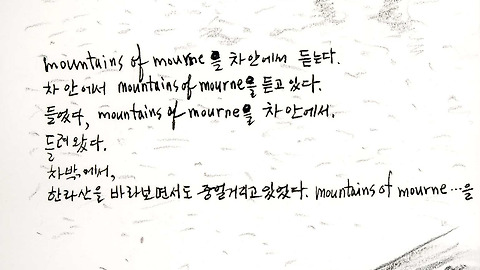 mountains of mourne을 차안에서 듣는다.
차안에서 mountains of mourne을 듣고 있다.
들었다, mountains of mourne을 차안에서.
들려왔다.
차밖에서,
한라산을 바라보면서도 중얼거리고 있었다. mountains of mourne…을